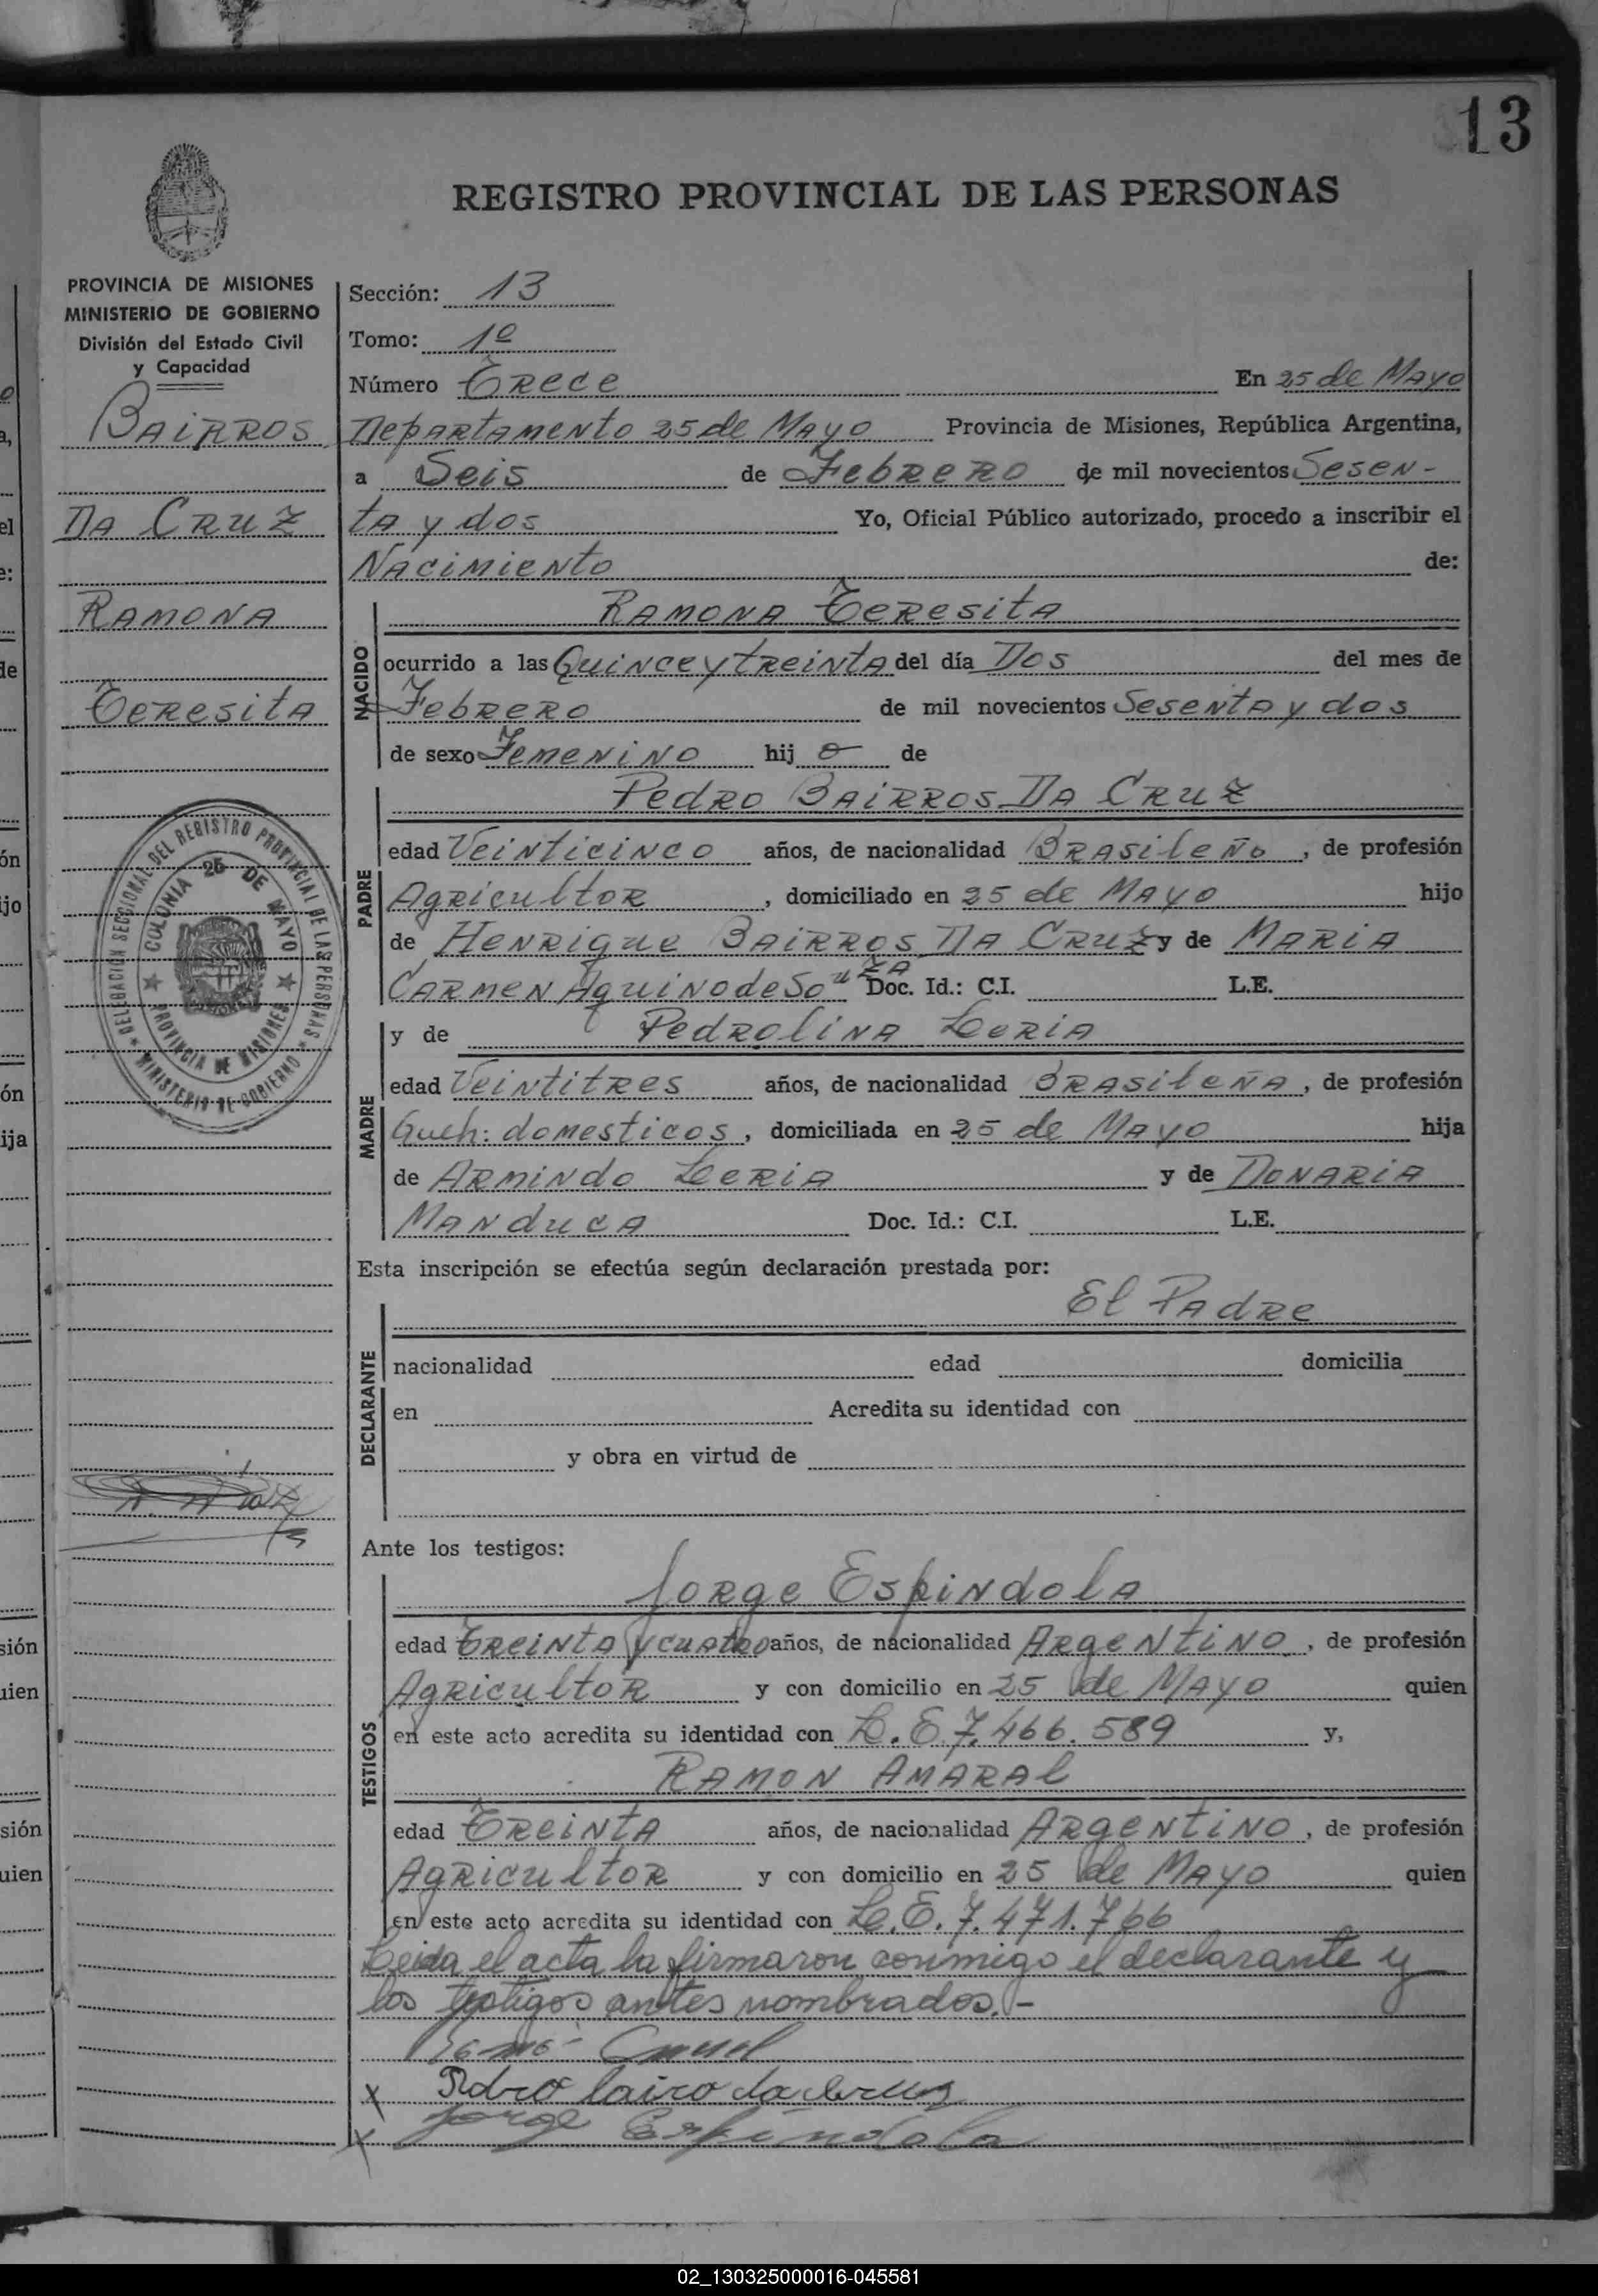 13
REGISTRO PROVINCIAL DE LAS PERSONAS
PROVINCIA DE MISIONES
MINISTERIO DE GOBIERNO
División del Estado Civil
y Capacidad
BAIRROS
DA CRUZ
RAMONA
TERESITA
DELEGACION SECCIONAL DEL REGISTRO PROVINCIAL DE LAS PERSONAS
COLONIA 25 DE MAYO
PROVINCIA DE MISIONES
MINISTERIO DE GOBIERNO
Sección: 13
Tomo: 1º
Número Trece En 25 de Mayo
Departamento 25 de Mayo Provincia de Misiones, República Argentina,
a Seis de Febrero de mil novecientos Sesen-
ta y dos Yo, Oficial Público autorizado, procedo a inscribir el
Nacimiento de:
Ramona Teresita
NACIDO
ocurrido a las Quince y treinta del día Dos del mes de
Febrero de mil novecientos Sesenta y dos
de sexo Femenino hij a de
Pedro Bairros Da Cruz
PADRE
edad Veinticinco años, de nacionalidad Brasileño, de profesión
Agricultor, domiciliado en 25 de Mayo hijo
de Henrique Bairros Da Cruz y de Maria
Carmen Aquino de Souza Doc. Id.: C.I. L.E.
y de Pedrolina Leria
MADRE
edad Veintitres años, de nacionalidad Brasileña, de profesión
Queh: domesticos, domiciliada en 25 de Mayo hija
de Armindo Leria y de Donaria
Manduca Doc. Id.: C.I. L.E.
Esta inscripción se efectúa según declaración prestada por:
El Padre
DECLARANTE
nacionalidad edad domicilia
en Acredita su identidad con
y obra en virtud de
Ante los testigos:
Jorge Espindola
TESTIGOS
edad Treinta y cuatro años, de nacionalidad Argentino, de profesión
Agricultor y con domicilio en 25 de Mayo quien
en este acto acredita su identidad con L.E. 7.466.589 y,
Ramon Amaral
edad Treinta años, de nacionalidad Argentino, de profesión
Agricultor y con domicilio en 25 de Mayo quien
en este acto acredita su identidad con L.E. 7.471.766
Leida el acta la firmaron conmigo el declarante y
los testigos antes nombrados.-
X Pdro lairo da cruz
X Jorge Espindola
02_130325000016-045581